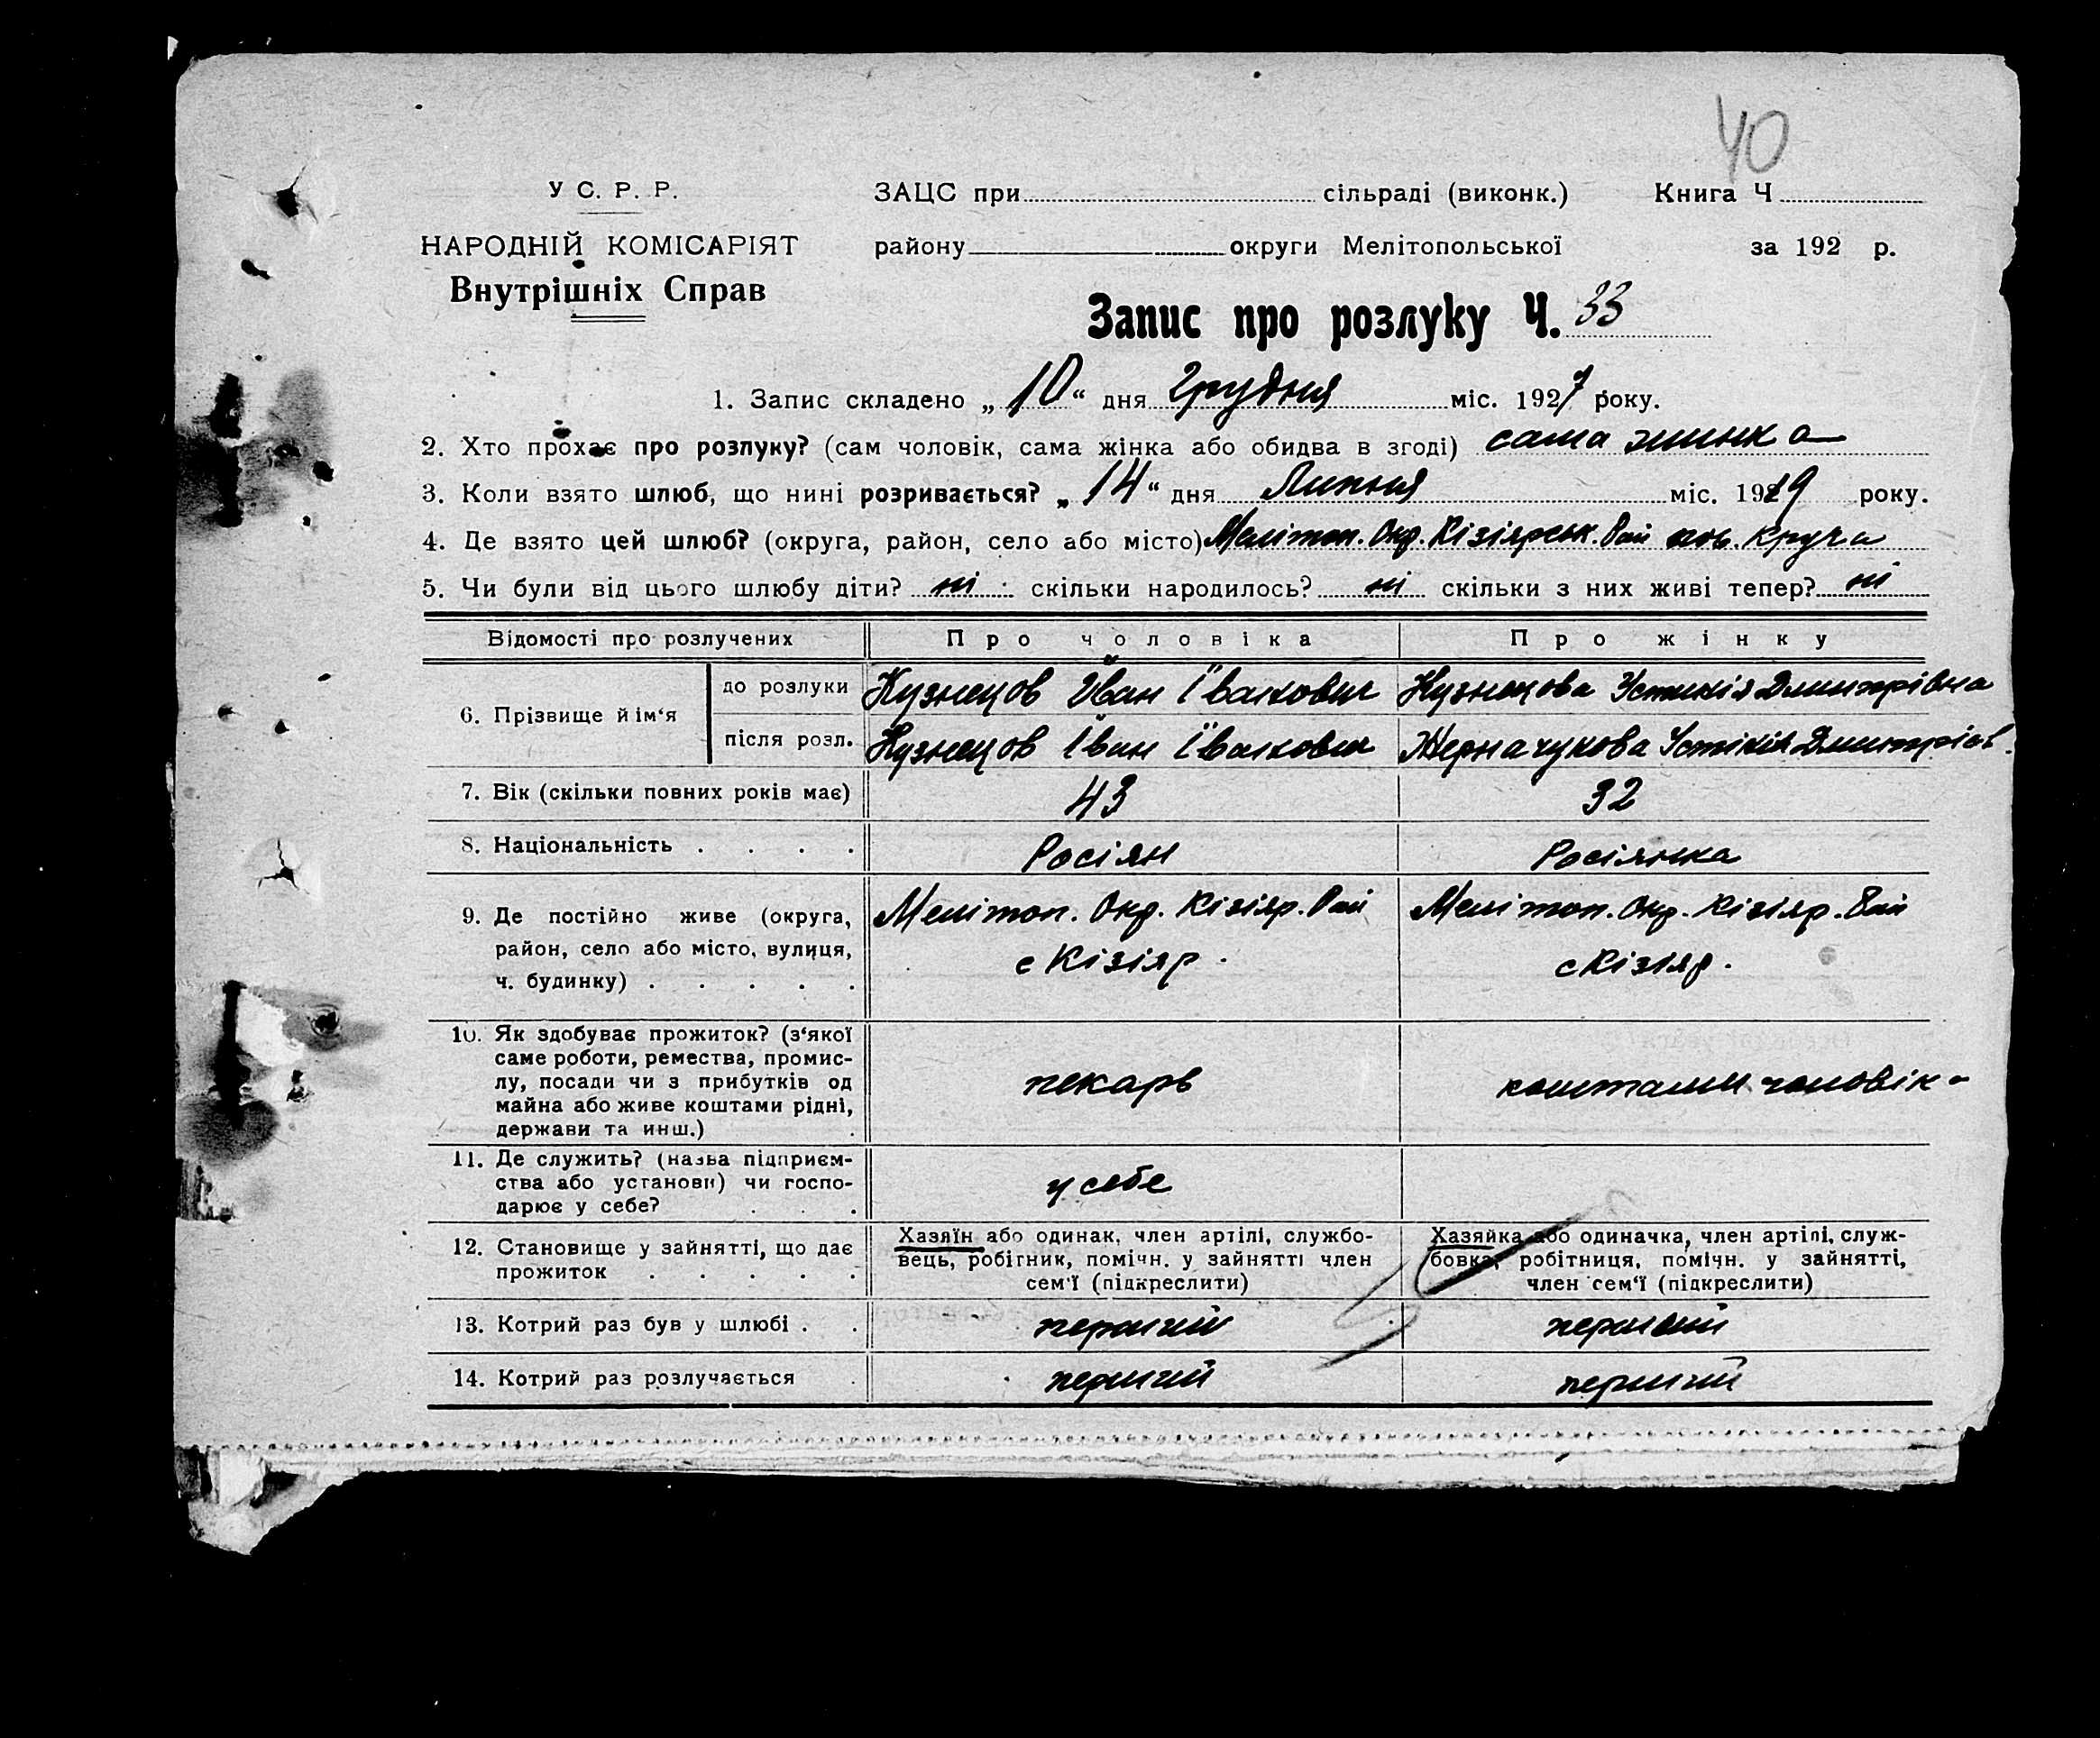 40
У С. Р. Р.
НАРОДНІЙ КОМІСАРІЯТ
Внутрішніх Справ
ЗАЦС при сільраді (виконк.) Книга Ч
району округи Мелітопольської за 192 р.
Запис про розлуку Ч. 33
1. Запис складено „ 10 “ дня Грудня міс. 1927 року.
2. Хто прохає про розлуку? (сам чоловік, сама жінка або обидва в згоді) сама жинка
3. Коли взято шлюб, що нині розривається? „ 14 “ дня Липня міс. 1919 року.
4. Де взято цей шлюб? (округа, район, село або місто) Мелітоп. Окр. Кізіярськ. Рай пов. Круча
5. Чи були від цього шлюбу діти? ні скільки народилось? ні скільки з них живі тепер? ні
Відомості про розлучених Про чоловіка Про жінку
6. Прізвище й ім‘я
до розлуки Кузнецов Иван Іванович Кузнецова Устинія Дмитрівна
після розл. Кузнецов Іван Іванович Дмитріев.
7. Вік (скільки повних років має) 43 32
8. Національність . . . . Росіян Росіянка
9. Де постійно живе (округа, район, село або місто, вулиця, ч. будинку) . . . . .
Мелітоп. Окр. Кізіяр. Рай
с Кізіяр.
Мелітоп. Окр. Кізіяр. Рай
с Кізіяр.
10. Як здобуває прожиток? (з‘якої
саме роботи, ремества, промис-
лу, посади чи з прибутків од
майна або живе коштами рідні,
держави та инш.) .
пекарь
коштами чоловіка
11. Де служить? (назва підприєм-
ства або установи) чи госпо-
дарює у себе? . . .
у себе
12. Становище у зайнятті, що дає
прожиток . . . . .
Хазяїн або одинак, член артілі, службо-
вець, робітник, помічн. у зайнятті член
сем‘ї (підкреслити)
Хазяйка або одиначка, член артілі, служ-
бовка, робітниця, помічн. у зайнятті,
член сем‘ї (підкреслити)
13. Котрий раз був у шлюбі . . перший перший
14. Котрий раз розлучається . перший перший